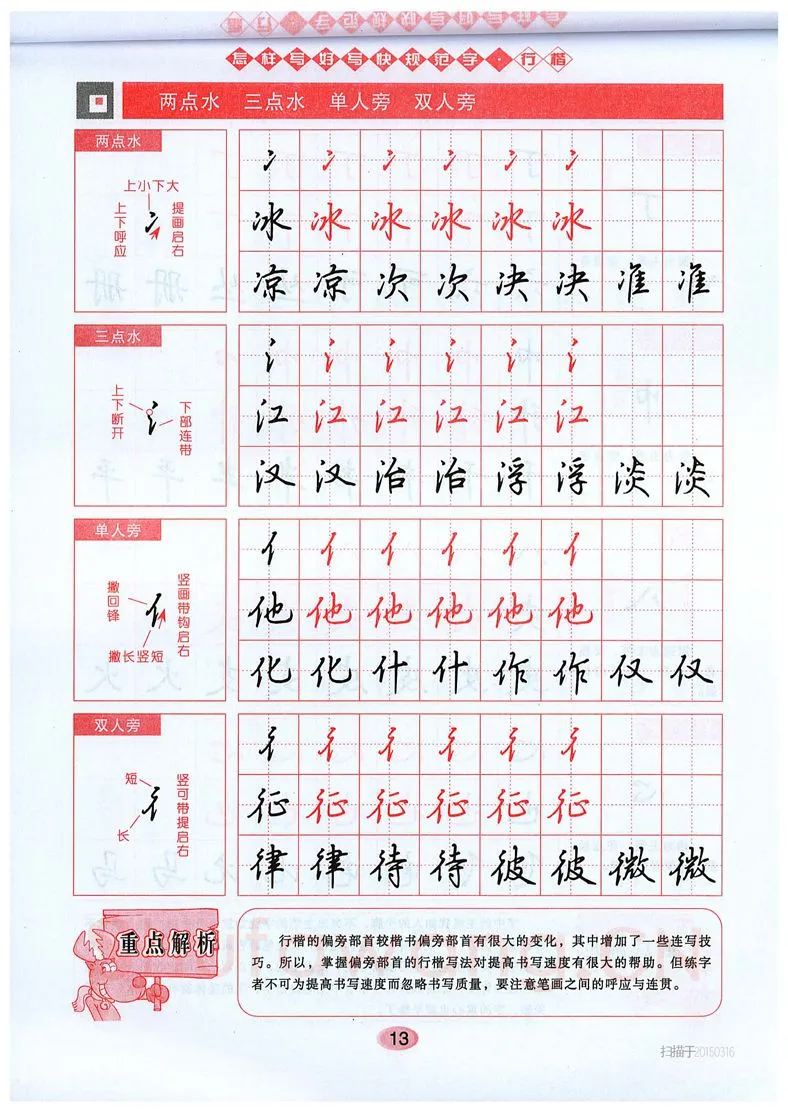 怎样写好写快规范字·行楷
两点水 三点水 单人旁 双人旁
两点水
上小下大
上下呼应
提画启右
冫 冫 冫 冫 冫 冫
冰 冰 冰 冰 冰 冰
凉 凉 次 次 决 决 准 准
三点水
上下断开
下部连带
氵 氵 氵 氵 氵 氵
江 江 江 江 江 江
汉 汉 治 治 浮 浮 淡 淡
单人旁
撇回锋
竖画带钩启右
撇长竖短
亻 亻 亻 亻 亻 亻
他 他 他 他 他 他
化 化 什 什 作 作 仅 仅
双人旁
短
长
竖可带提启右
彳 彳 彳 彳 彳 彳
征 征 征 征 征 征
律 律 待 待 彼 彼 微 微
重点解析
行楷的偏旁部首较楷书偏旁部首有很大的变化，其中增加了一些连写技
巧。所以，掌握偏旁部首的行楷写法对提高书写速度有很大的帮助。但练字
者不可为提高书写速度而忽略书写质量，要注意笔画之间的呼应与连贯。
13
扫描于20150316